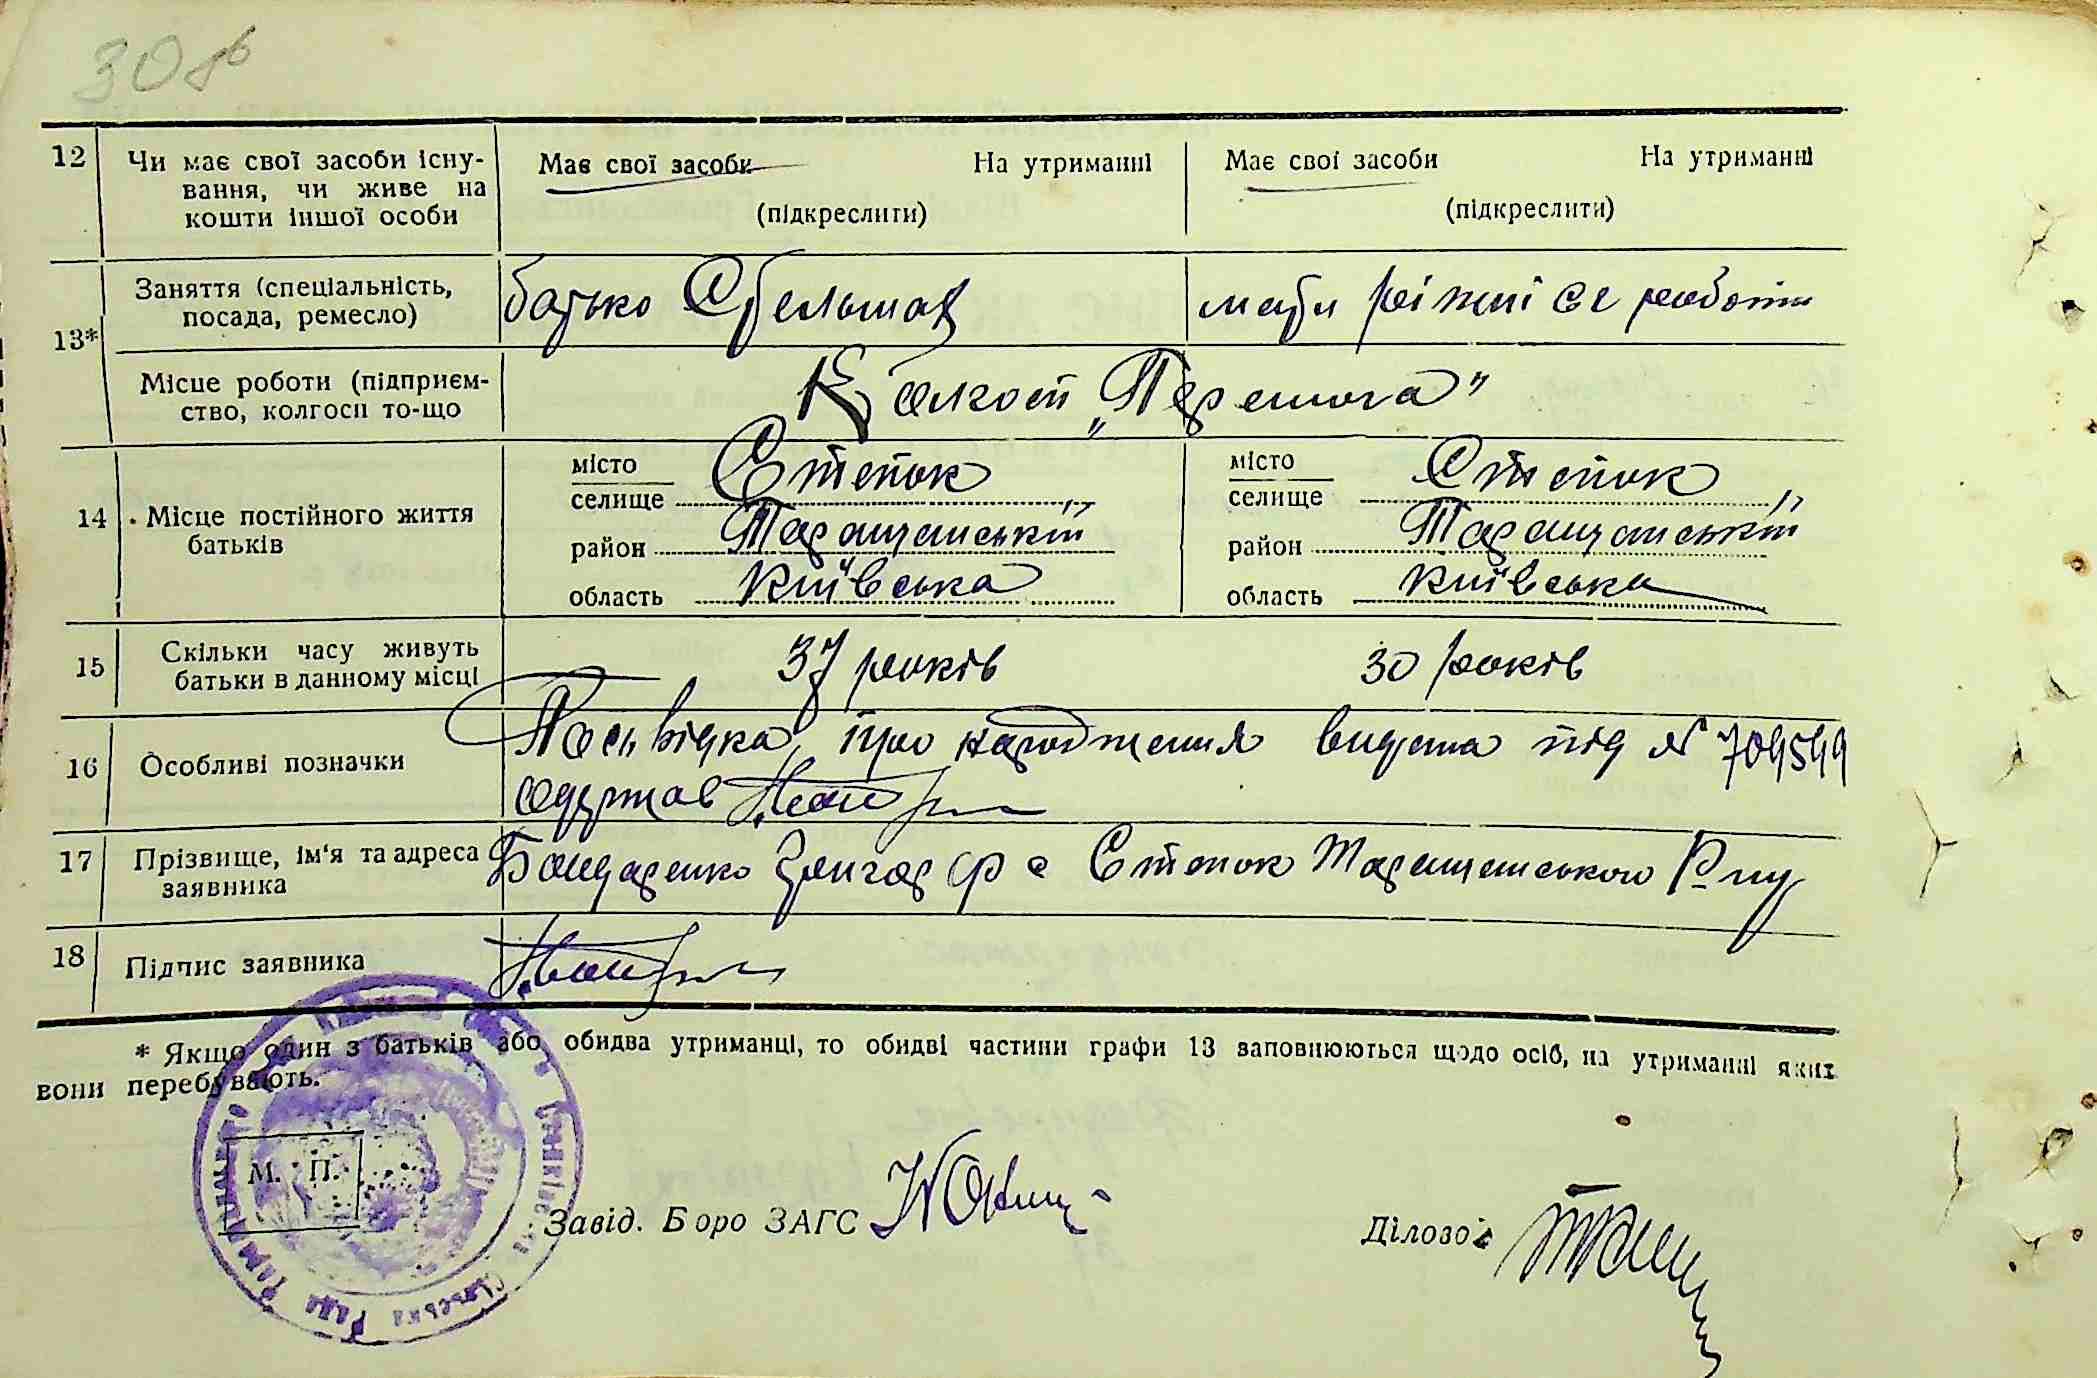 30
12 Чи має свої засоби існу-
вання, чи живе на
кошти іншої особи
Має свої засоби На утриманні
(підкреслити)
Має свої засоби На утриманні
(підкреслити)
13*
Заняття (спеціальність,
посада, ремесло)
батько
мати ріжні роботи
Місце роботи (підприєм-
ство, колгосп то-що
Колгосп „Перемога"
14 Місце постійного життя
батьків
місто
селище Степок
район Таращанський
область Київська
місто
селище Степок
район Таращанський
область Київська
15 Скільки часу живуть
батьки в данному місці
37 років
30 років
16 Особливі позначки
Посьвідка про народження видана під № 709549
одержав
17 Прізвище, ім'я та адреса
заявника
Бондаренко с Степок Таращанського Р-ну
18 Підпис заявника
* Якщо один з батьків або обидва утриманці, то обидві частини графи 13 заповнюються щодо осіб, на утриманні яких
вони перебувають.
М. П.
Сільська Рада
Завід. Бюро ЗАГС
Діловод